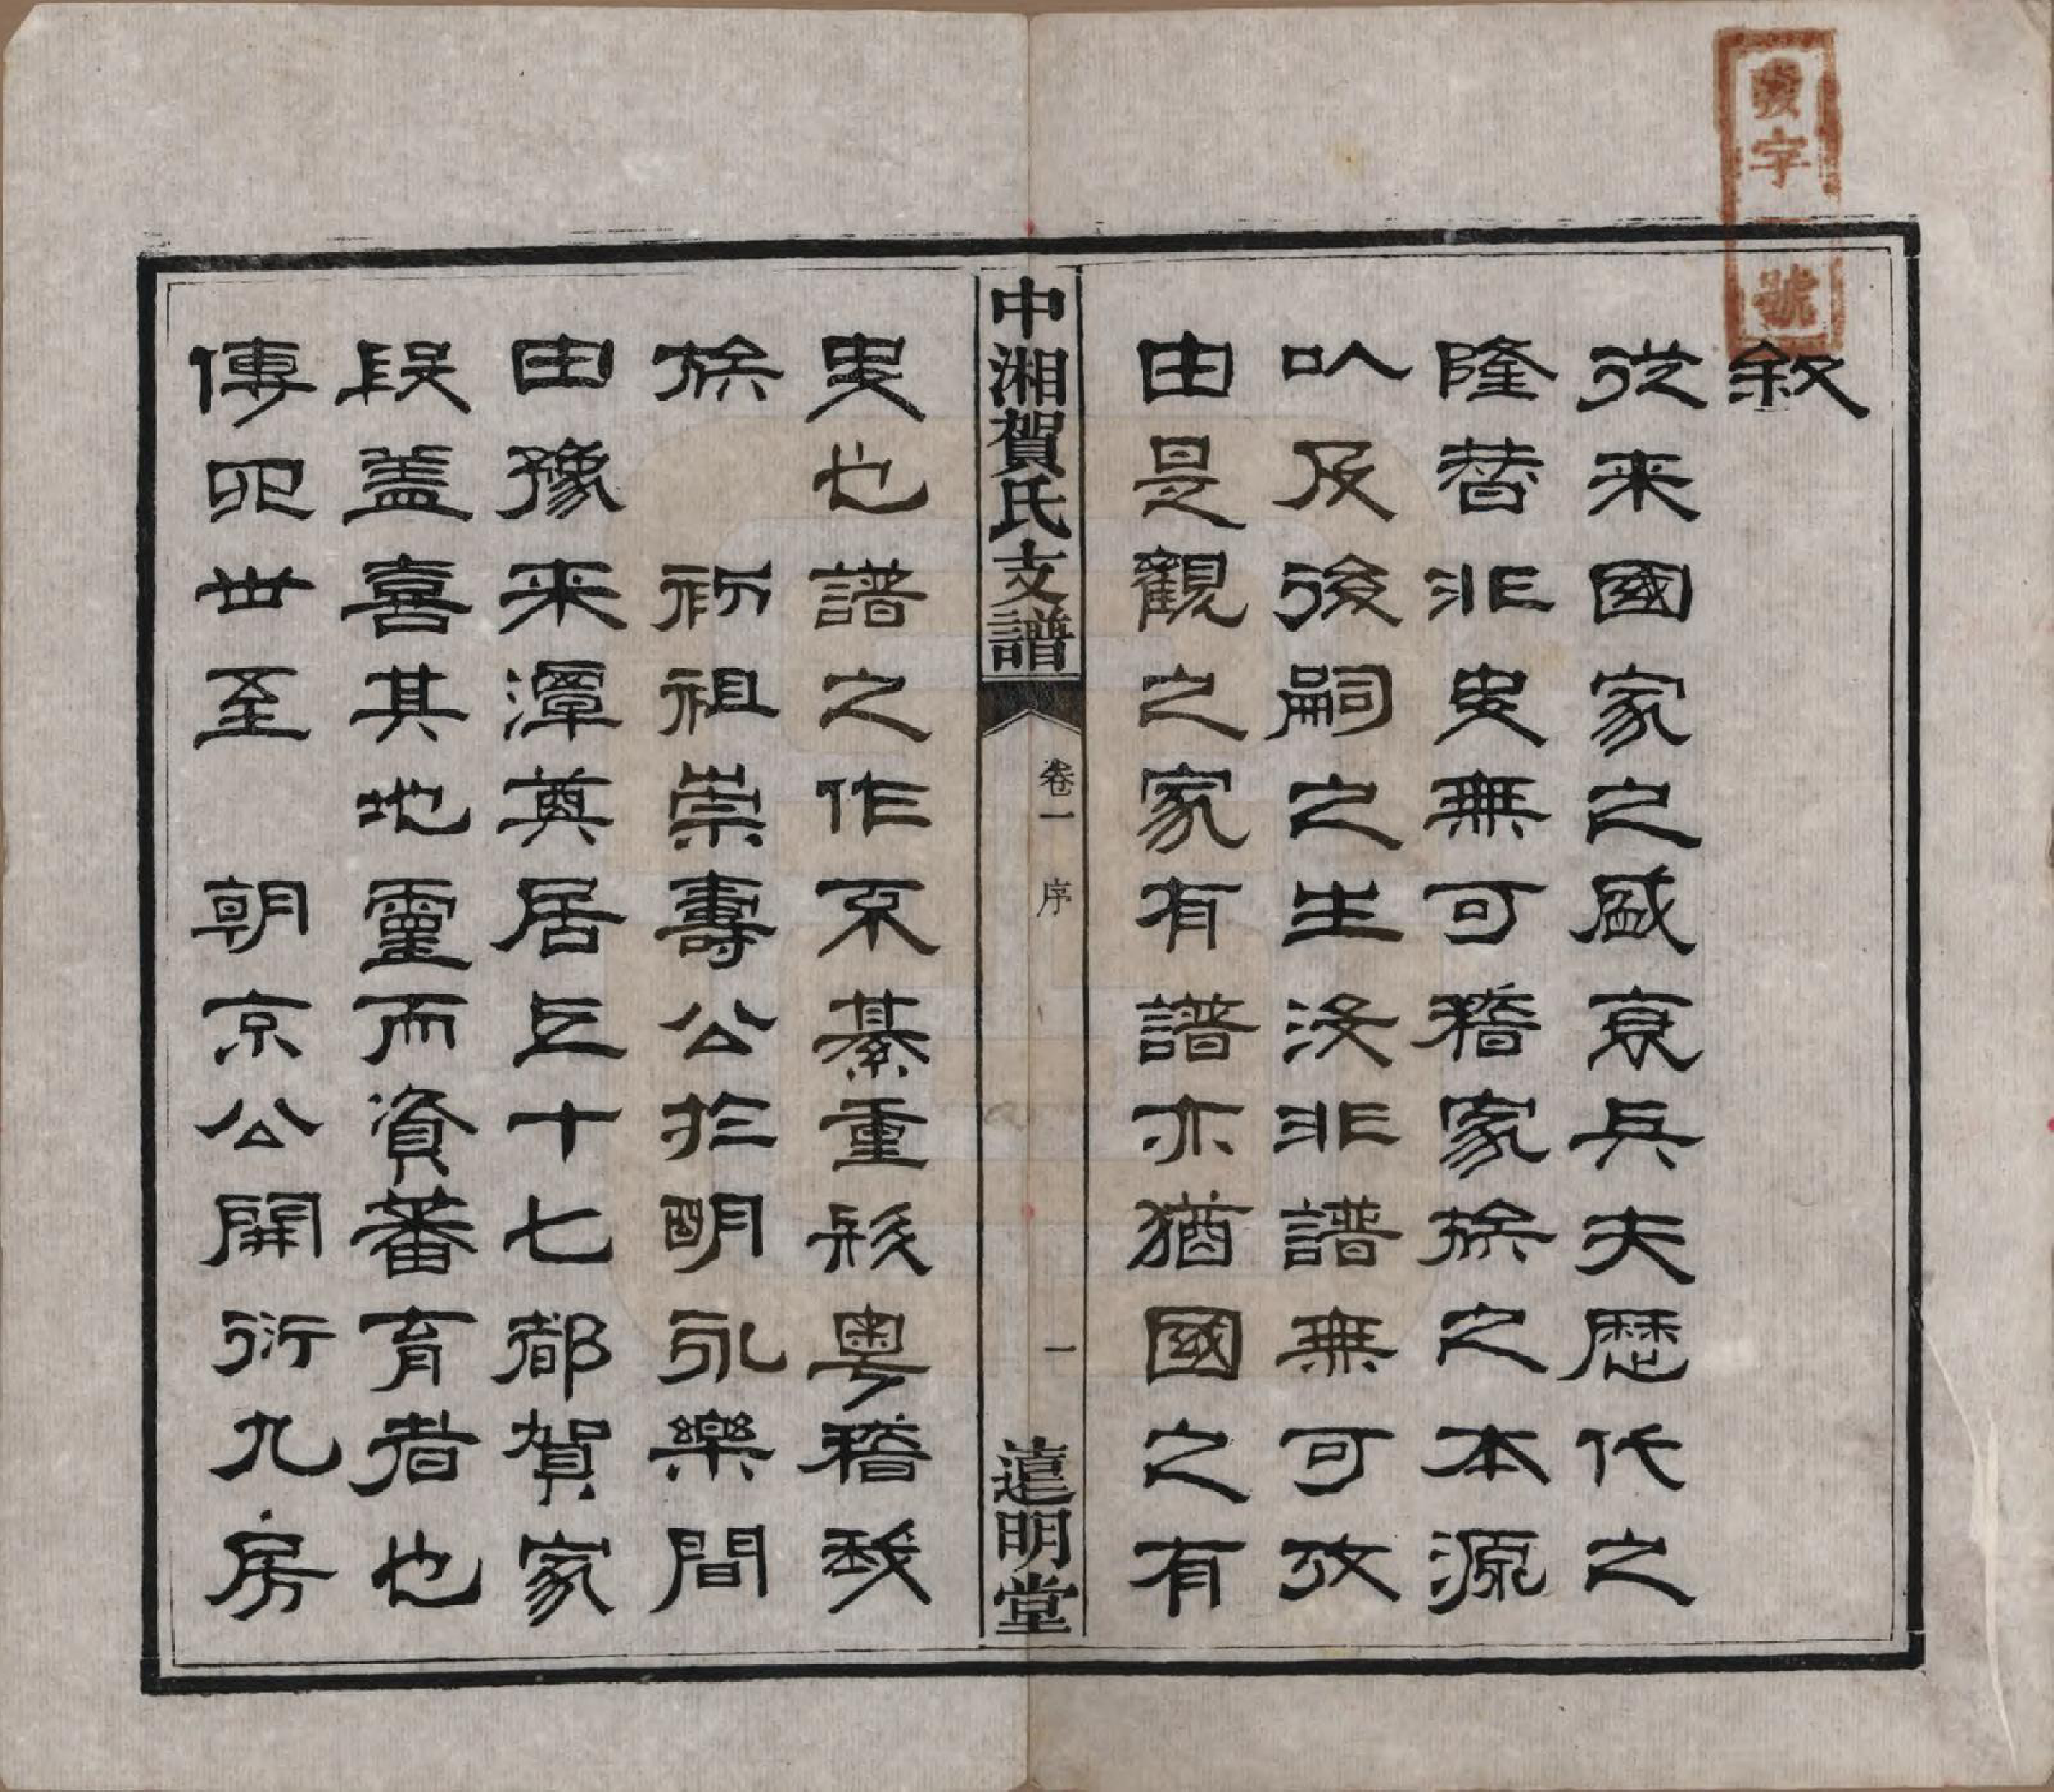 敘
從来國家之盛衰與夫歷代之
隆替非史無可稽家族之本源
以及後嗣之生没非譜無可攷
由是觀之家有譜亦猶國之有
中湘賀氏支譜
卷一 序
一
遠明堂
史也譜之作不綦重哉粵稽我
族 初祖崇壽公於明永樂間
由豫来潭奠居上十七都賀家
段盖喜其地靈而資蕃育者也
傳四世至 朝京公開衍九房
字 號